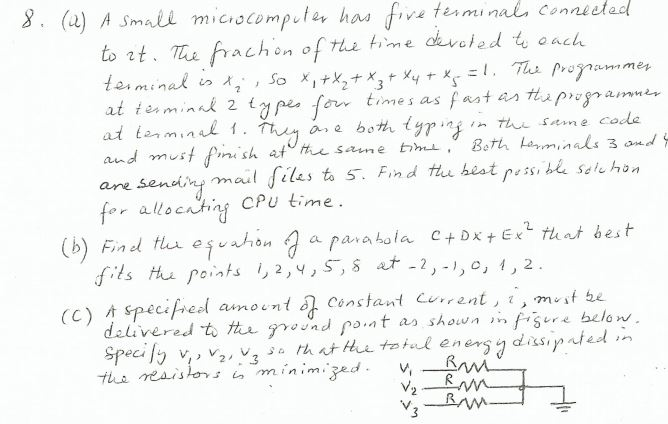 8. (a) A small microcomputer has five terminals connected
to it. The fraction of the time devoted to each
terminal is x_i, so x₁+x₂+x₃+x₄+x₅=1. The programmer
at terminal 2 types four times as fast as the programmer
at terminal 1. They are both typing in the same code
and must finish at the same time. Both terminals 3 and 4
are sending mail files to 5. Find the best possible solution
for allocating CPU time.
(b) Find the equation of a parabola C+Dx+Ex² that best
fits the points 1,2,4,5,8 at -2,-1,0,1,2.
(C) A specified amount of constant current, i, must be
delivered to the ground point as shown in figure below.
Specify V₁, V₂, V₃ so that the total energy dissipated in
the resistors is minimized.
V₁ R
V₂ R
V₃ R